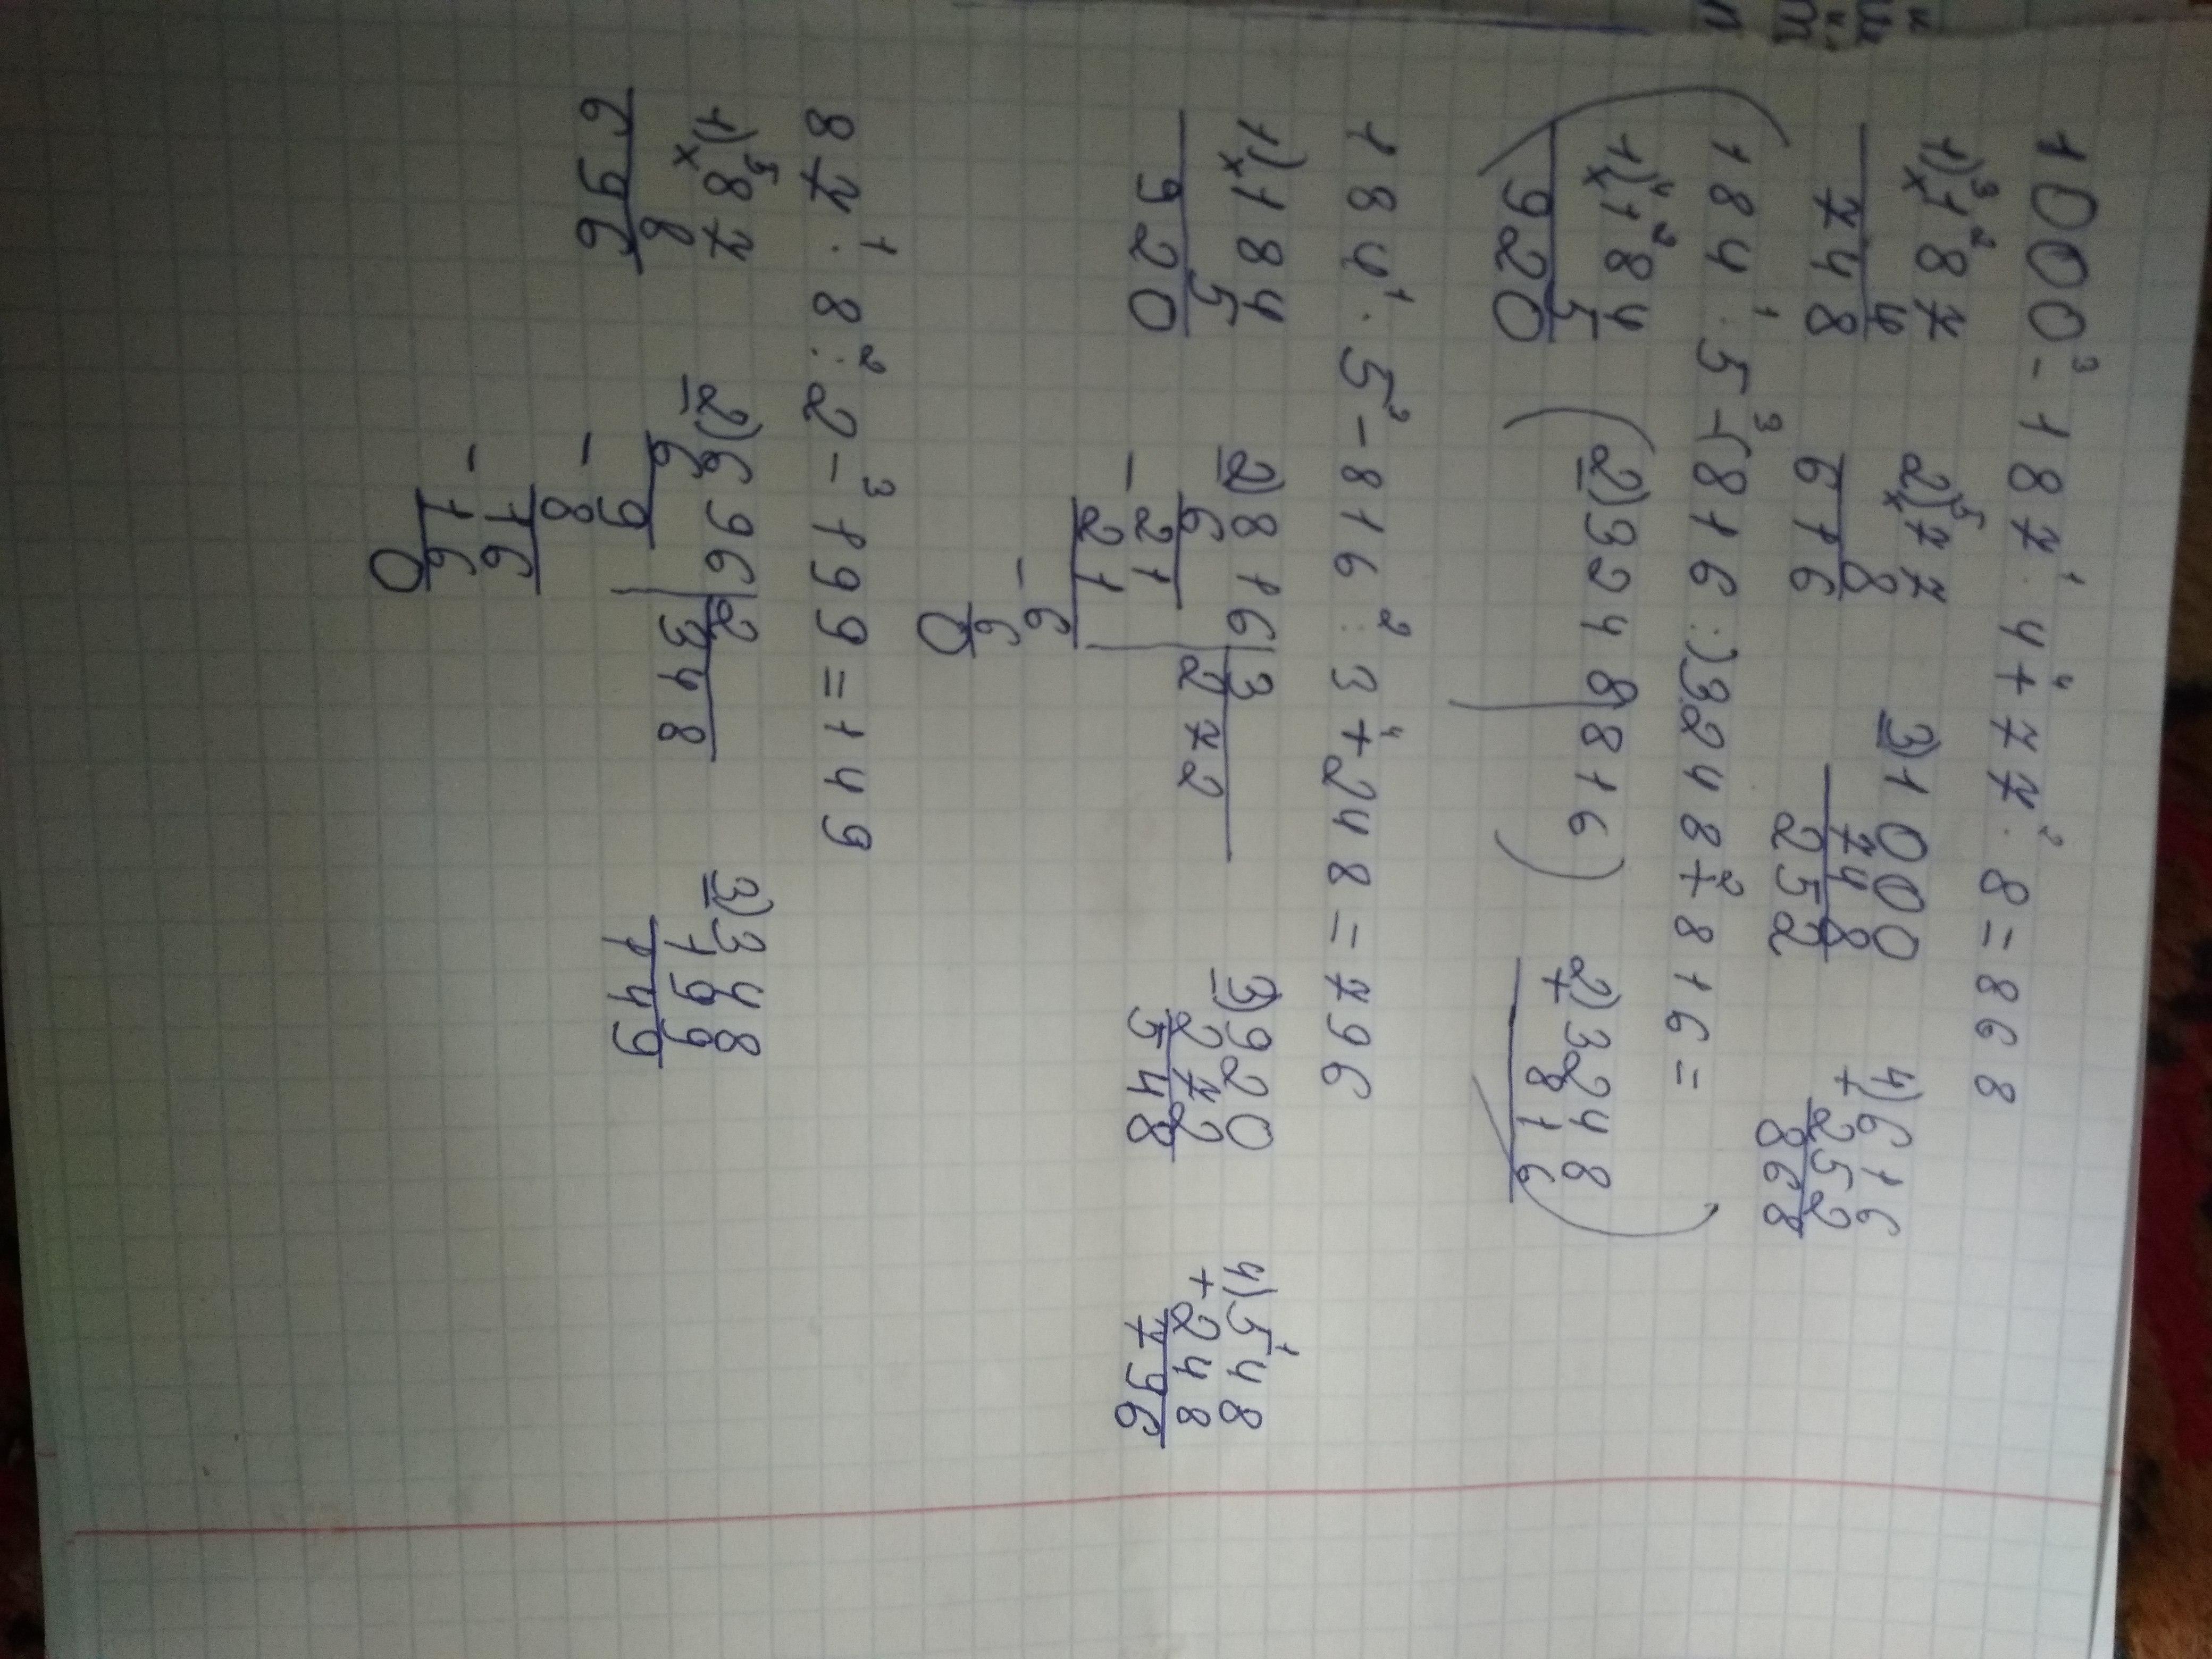 1000 ³- 187 ¹· 4 ⁴+ 77 ²· 8 = 868
1) ³1²87 2) ⁵77 3) 1000 4) 616
× 4 × 8 - 748 + 252
748 616 252 868
(184 ¹· 5 ³- (816 :) 3248 ²+ 816 =
1) ⁴1²84 (2) 3248 | 816) 2) 3248
× 5 + 816)
920
184 ¹· 5 ²- 816 ²: 3 ⁴+ 248 = 796
1) 184 2) 816 | 3 3) 920 4) 5¹48
× 5 6 | 272 - 272 + 248
920 - 21 548 796
21
- 6
6
0
87 ¹· 8 ²: 2 - ³ 199 = 149
1) ⁵87 2) 696 | 2 3) 348
× 8 6 | 348 - 199
696 - 9 149
8
- 16
16
0